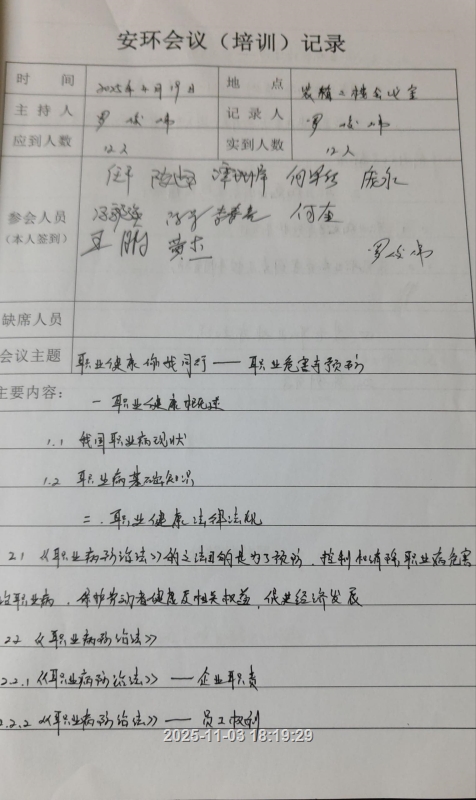 安环会议（培训）记录
时 间 2025年4月19日 地 点 装精二楼会议室
主 持 人 罗 记 录 人 罗
应到人数 12人 实到人数 12人
参会人员 何军 庞
（本人签到） 何奎
王鹏 黄杰 罗
缺席人员
会议主题 职业健康你我同行——职业危害与预防
主要内容：
一 职业健康概述
1.1 我国职业病现状
1.2 职业病基础知识
二．职业健康法律法规
2.1《职业病防治法》的立法目的是为了预防、控制和消除职业病危害
职业病，保护劳动者健康及相关权益，促进经济发展
2.2《职业病防治法》
2.2.1《职业病防治法》——企业职责
2.2.2《职业病防治法》——员工权利
2025-11-03 18:19:29